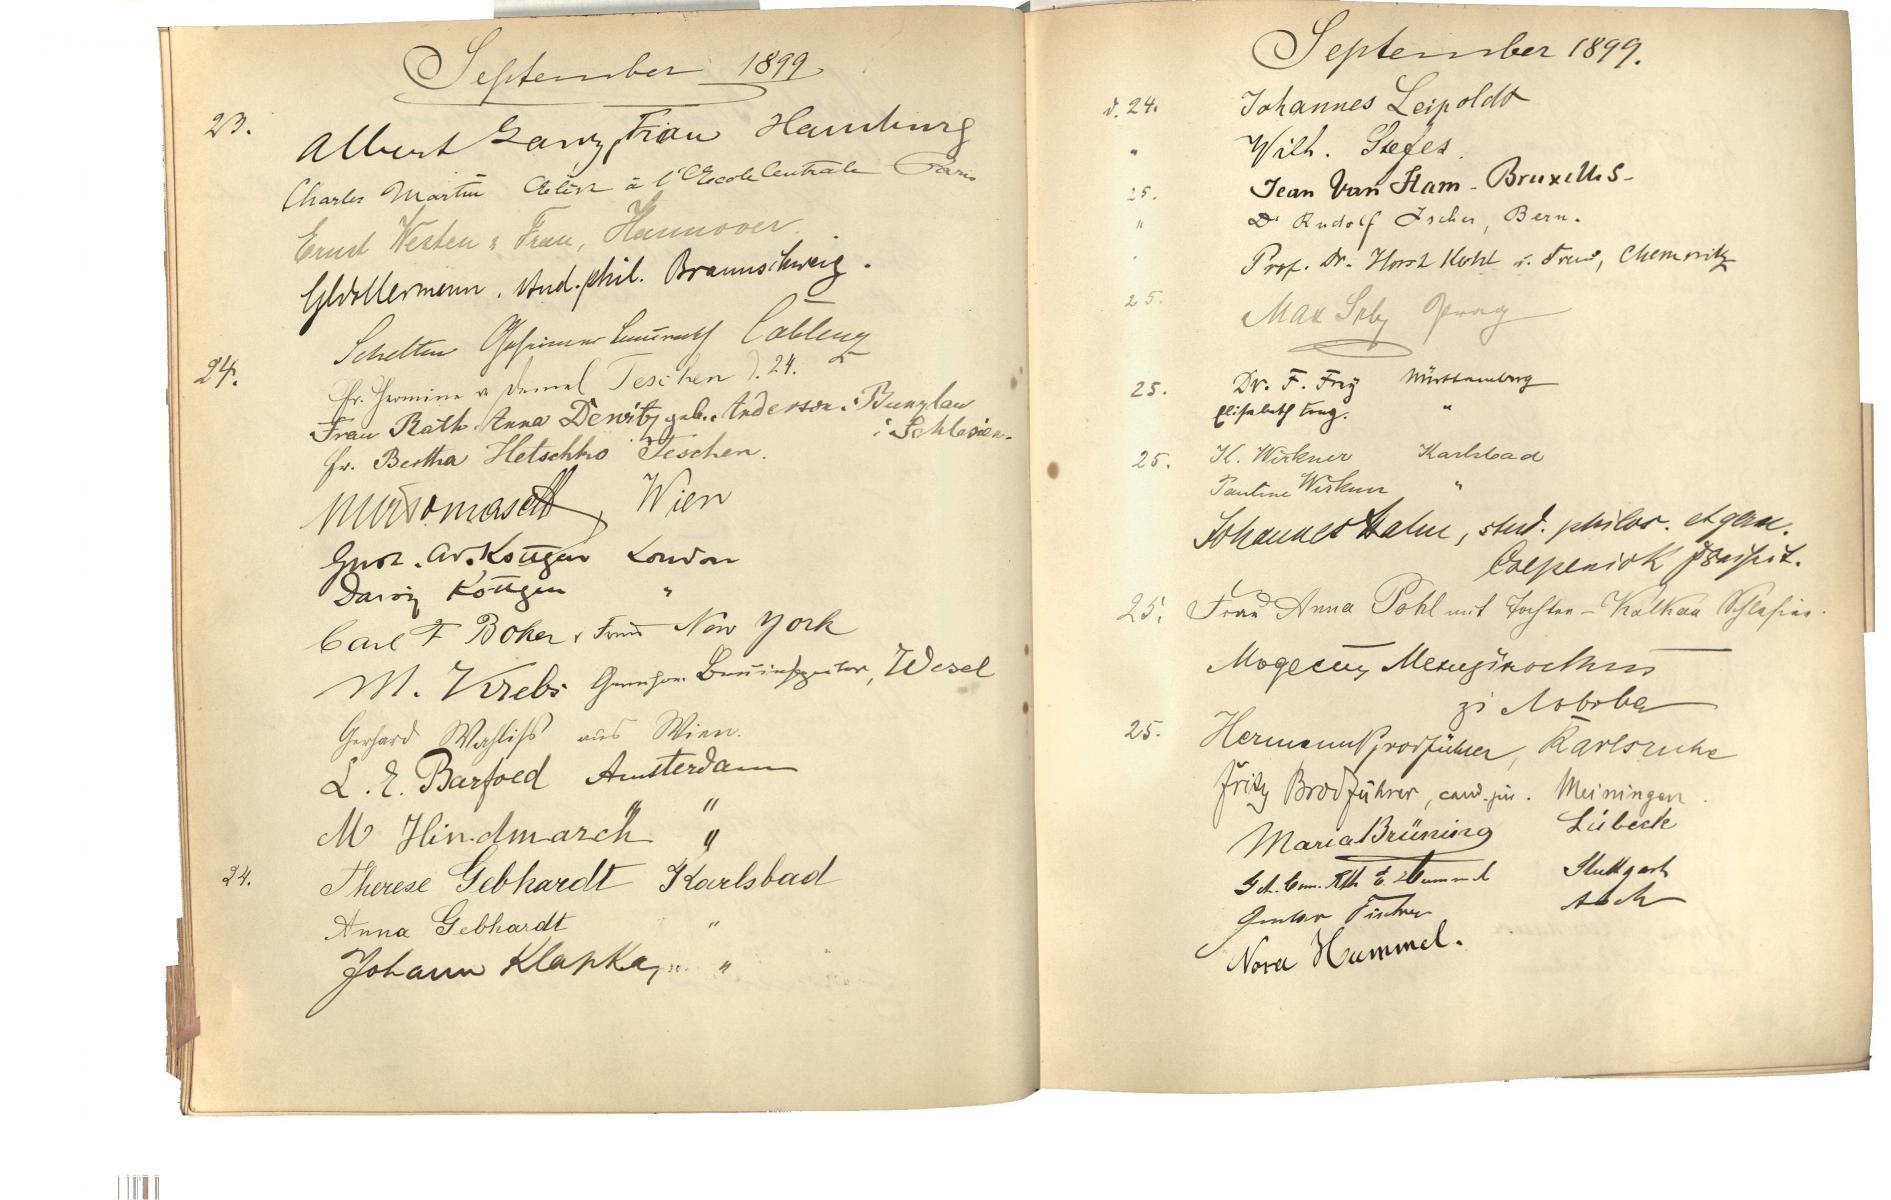 September 1899
23.
Albert Ganz, Frau Hamburg
Charles Martin Elève à l'Ecole Centrale Paris
Ernst Westen & Frau, Hannover.
stud. phil. Braunschweig.
Schelten Geheimer Baurath Coblenz
24.
Fr. Hermine v Teschen d. 24.
Frau Rath Anna Dewitz geb. Anderson. Bunzlau
i Schlesien.
Fr. Bertha Hetschko Teschen.
Wien
Gust. Ad. Köttgen London
Köttgen "
Carl F Boker & Frau New York
M. Krebs Garnison Bauinspector, Wesel
Gerhard Wahliß aus Wien.
L. E. Barfoed Amsterdam
" "
M Hindmarch "
24.
Therese Gebhardt Karlsbad
Anna Gebhardt "
Johann Klapka, "
September 1899.
d. 24. Johannes Leipoldt
" Wilh. Stefes.
25. Jean Van Ham - Bruxelles -
" Dr Rudolf Ischer, Bern.
Prof. Dr. Horst Kohl u. Frau, Chemnitz
25. Max Prag
25. Dr. F. Frey Württemberg
Elisabeth Frey. "
25. K. Wirkner Karlsbad
Pauline Wirkner "
Johannes Hahn, stud. philos. et
Coepenick
25. Frau Anna Pohl mit Tochter - Kalkau Schlesien.
25. Hermann Brodführer, Karlsruhe
Fritz Brodführer, cand. jur. Meiningen.
Maria Brüning Lübeck
Hummel Stuttgart
Gustav Fischer Asch
Nora Hummel.